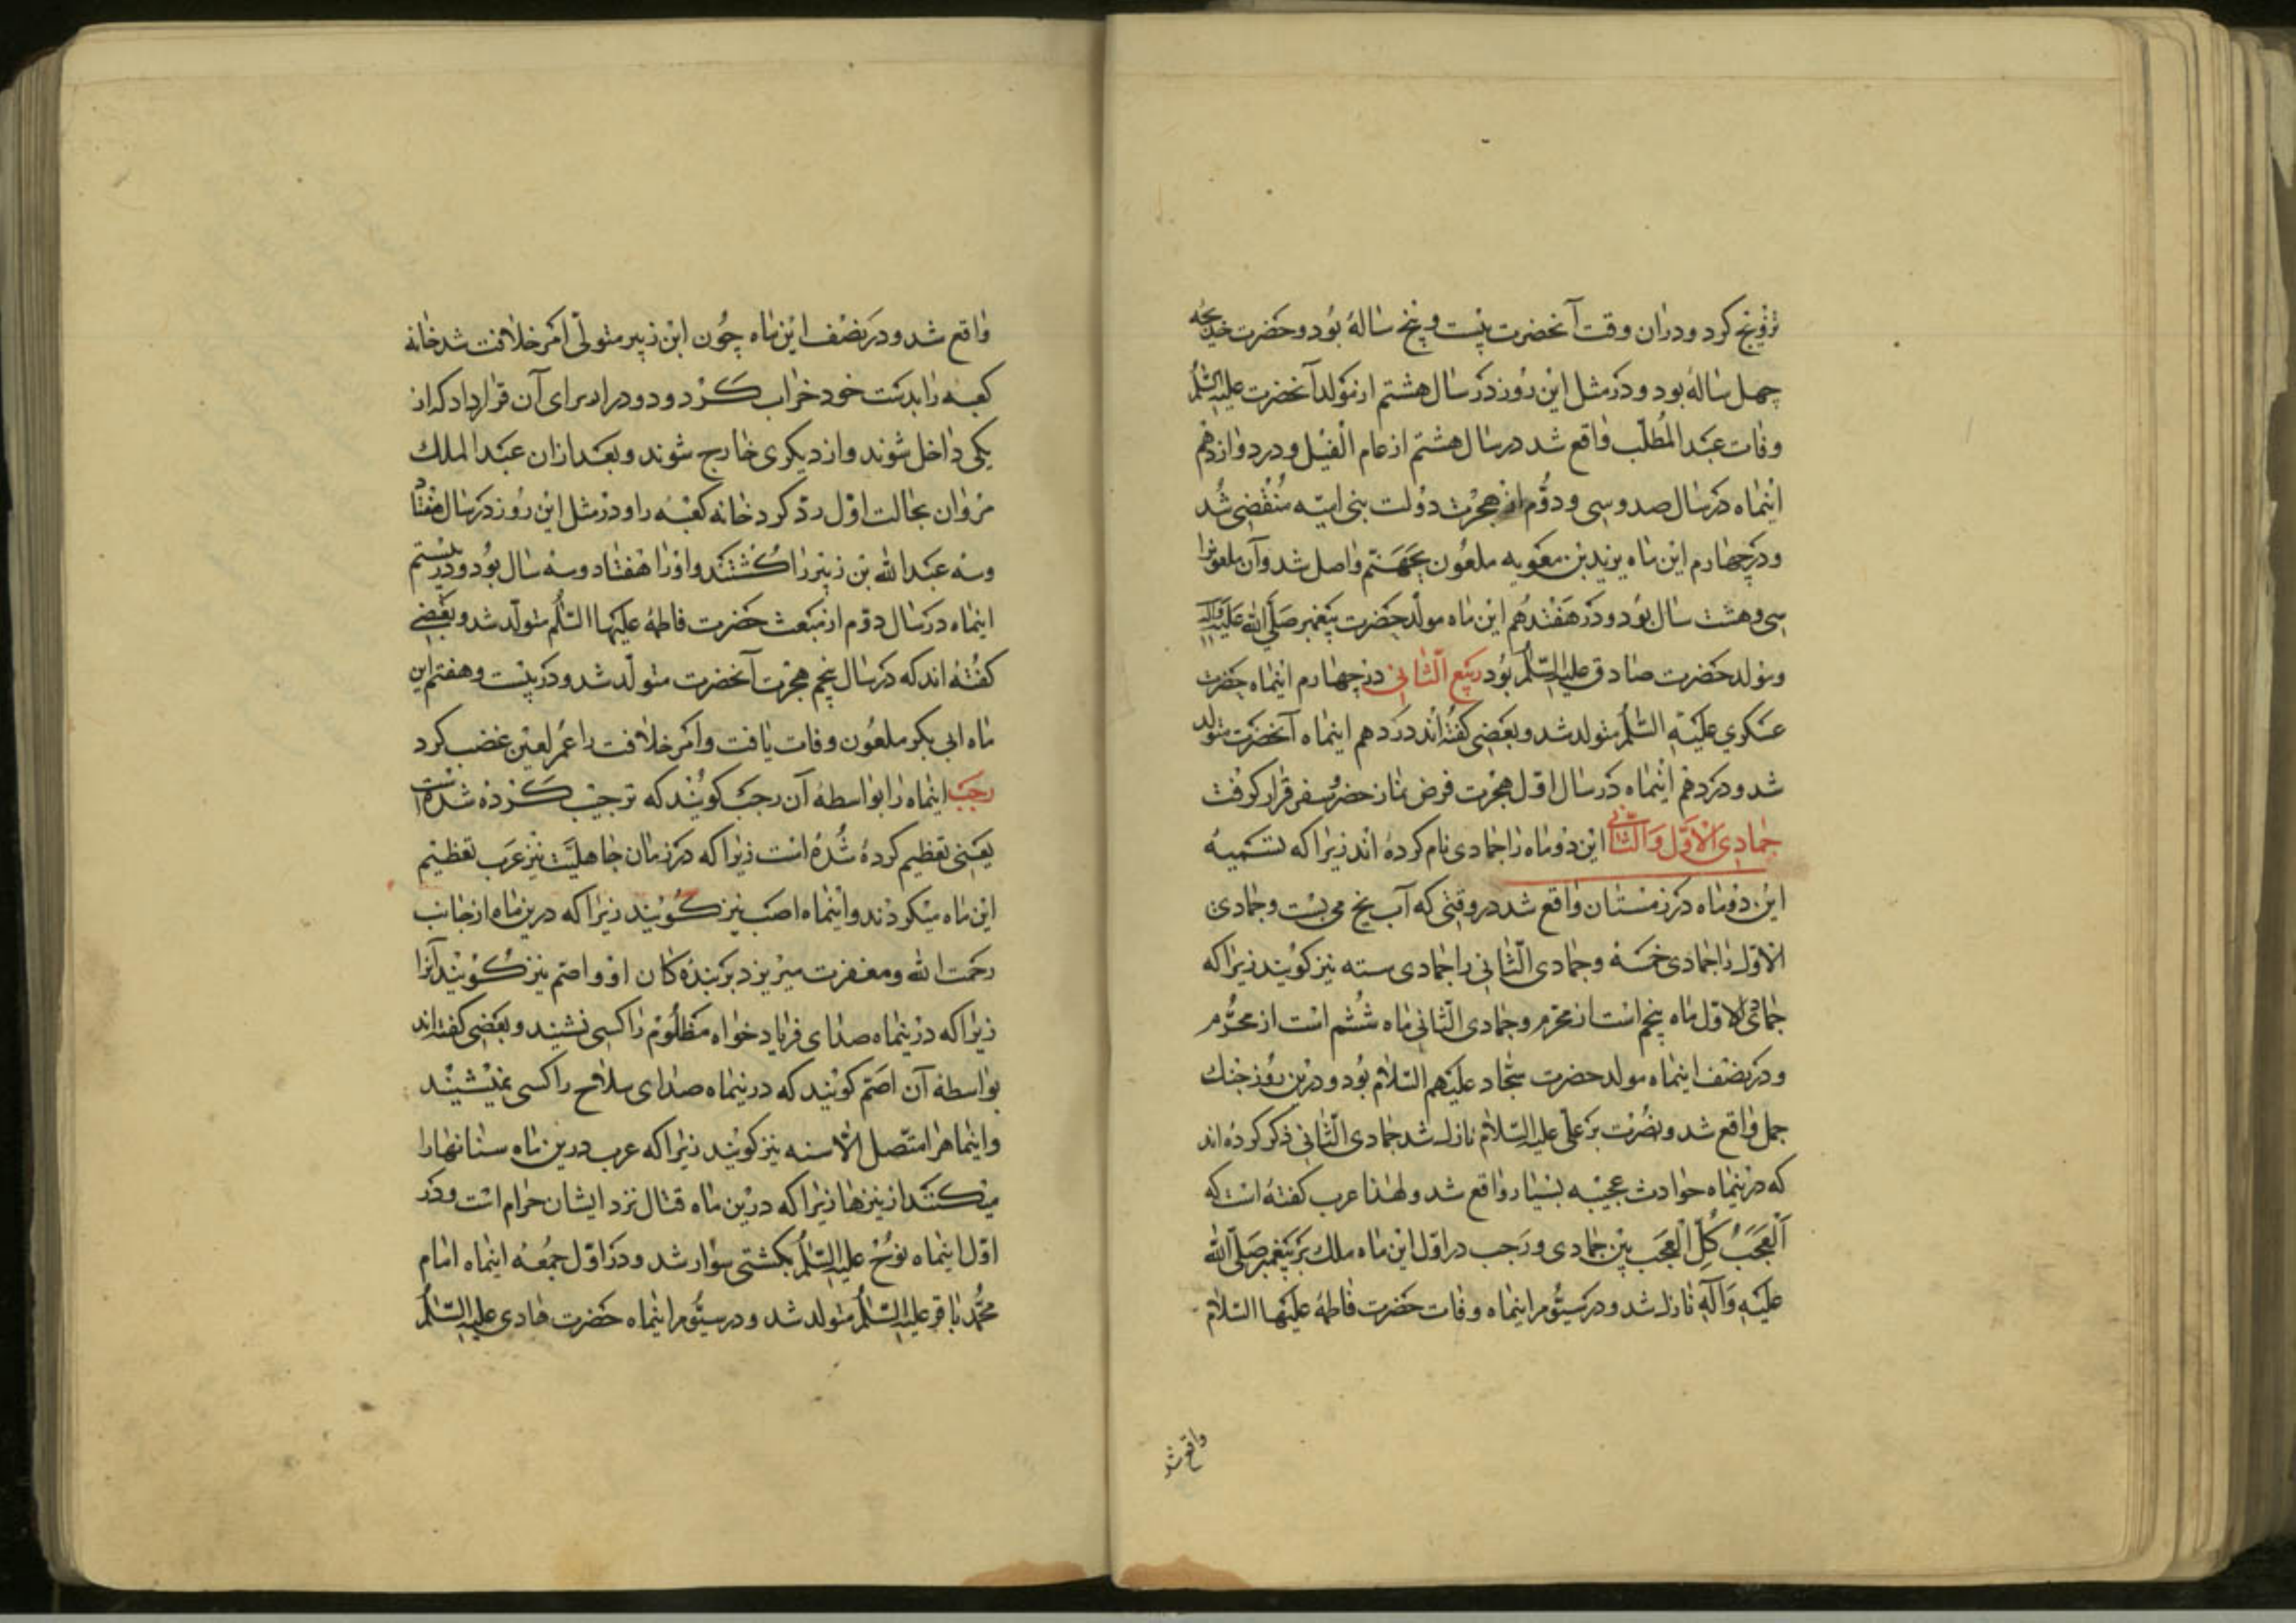 تزویج کرد و دران وقت آنحضرت بیست و پنج ساله بود و حضرت خدیجه
چهل ساله بود و در مثل این روز در سال هشتم از مولد آنحضرت علیه السلم
وفات عبد المطلب واقع شد در سال هشتم از عام الفیل و در دوازدهم
اینماه در سال صد و سی و دوم از هجرت دولت بنی امیه منقضی شد
و در چهاردهم این ماه یزید بن معویه ملعون بجهنم واصل شد و آن ملعونرا
سی و هشت سال بود و در هفدهم این ماه مولد حضرت پیغمبر صلی الله علیه و اله
و مولد حضرت صادق علیه السلم بود ربیع الثانی در چهارم اینماه حضرت
عسکری علیه السلم متولد شد و بعضی کفته اند در دهم اینماه آنحضرت متولد
شد و در دهم اینماه در سال اول هجرت فرض نماز حضر و سفر قرار کرفت
جمادی الاول و الثانی این دو ماه را جمادی نام کرده اند زیرا که تسمیه
این دو ماه در زمستان واقع شد در وقتی که آب یخ می بست و جمادی
الاول را جمادی خمسه و جمادی الثانی را جمادی سته نیز کویند زیرا که
جمادی الاول ماه پنجم است از محرم و جمادی الثانی ماه ششم است از محرم
و در نصف اینماه مولد حضرت سجاد علیهم السلام بود و درین روز جنك
جمل واقع شد و نصرت بر علی علیه السلام نازل شد جمادی الثانی ذکر کرده اند
که در ینماه حوادث عجیبه بسیار واقع شد و لهذا عرب کفته است که
العجب کل العجب بین جمادی و رجب در اول این ماه ملك بر پیغمبر صلی الله
علیه و آله نازل شد و در سیوم اینماه وفات حضرت فاطمه علیها السلام
واقع شد
واقع شد و در نصف این ماه چون ابن زبیر متولی امر خلافت شد خانه
کعبه را بدست خود خراب کرد و دو در از برای آن قرار داد که از
یکی داخل شوند و از دیکری خارج شوند و بعد ازان عبد الملك
مروان بحالت اول رد کرد خانه کعبه را و در مثل این روز در سال هفتاد
و سه عبد الله بن زبیر را کشتند و او را هفتاد و سه سال بود و در بیستم
اینماه در سال دوم از مبعث حضرت فاطمه علیها السلم متولد شد و بعضی
کفته اند که در سال پنجم هجرت آنحضرت متولد شد و در بیست و هفتم این
ماه ابی بکر ملعون وفات یافت و امر خلافت را عمر لعین غضب کرد
رجب اینماه را بواسطه آن رجب کویند که ترجیب کرده شده است
یعنی تعظیم کرده شده است زیرا که در زمان جاهلیت نیز عرب تعظیم
این ماه میکردند و اینماه اصب نیز کویند زیرا که درین ماه از جانب
رحمت الله و مغفرت میریزد بر بنده کان او و اصم نیز کویند آنرا
زیرا که در ینماه صدای فریاد خواه مظلوم را کسی نشیند و بعضی کفته اند
بواسطه آن اصم کویند که در ینماه صدای سلاح را کسی نمیشیند
و اینماهرا متصل الاسنه نیز کویند زیرا که عرب درین ماه سنانهارا
میکنند از نیزها زیرا که درین ماه قتال نزد ایشان حرام است و در
اول اینماه نوح علیه السلم بکشتی سوار شد و در اول جمعه اینماه امام
محمد باقر علیه السلم متولد شد و در سیوم اینماه حضرت هادی علیه السلم